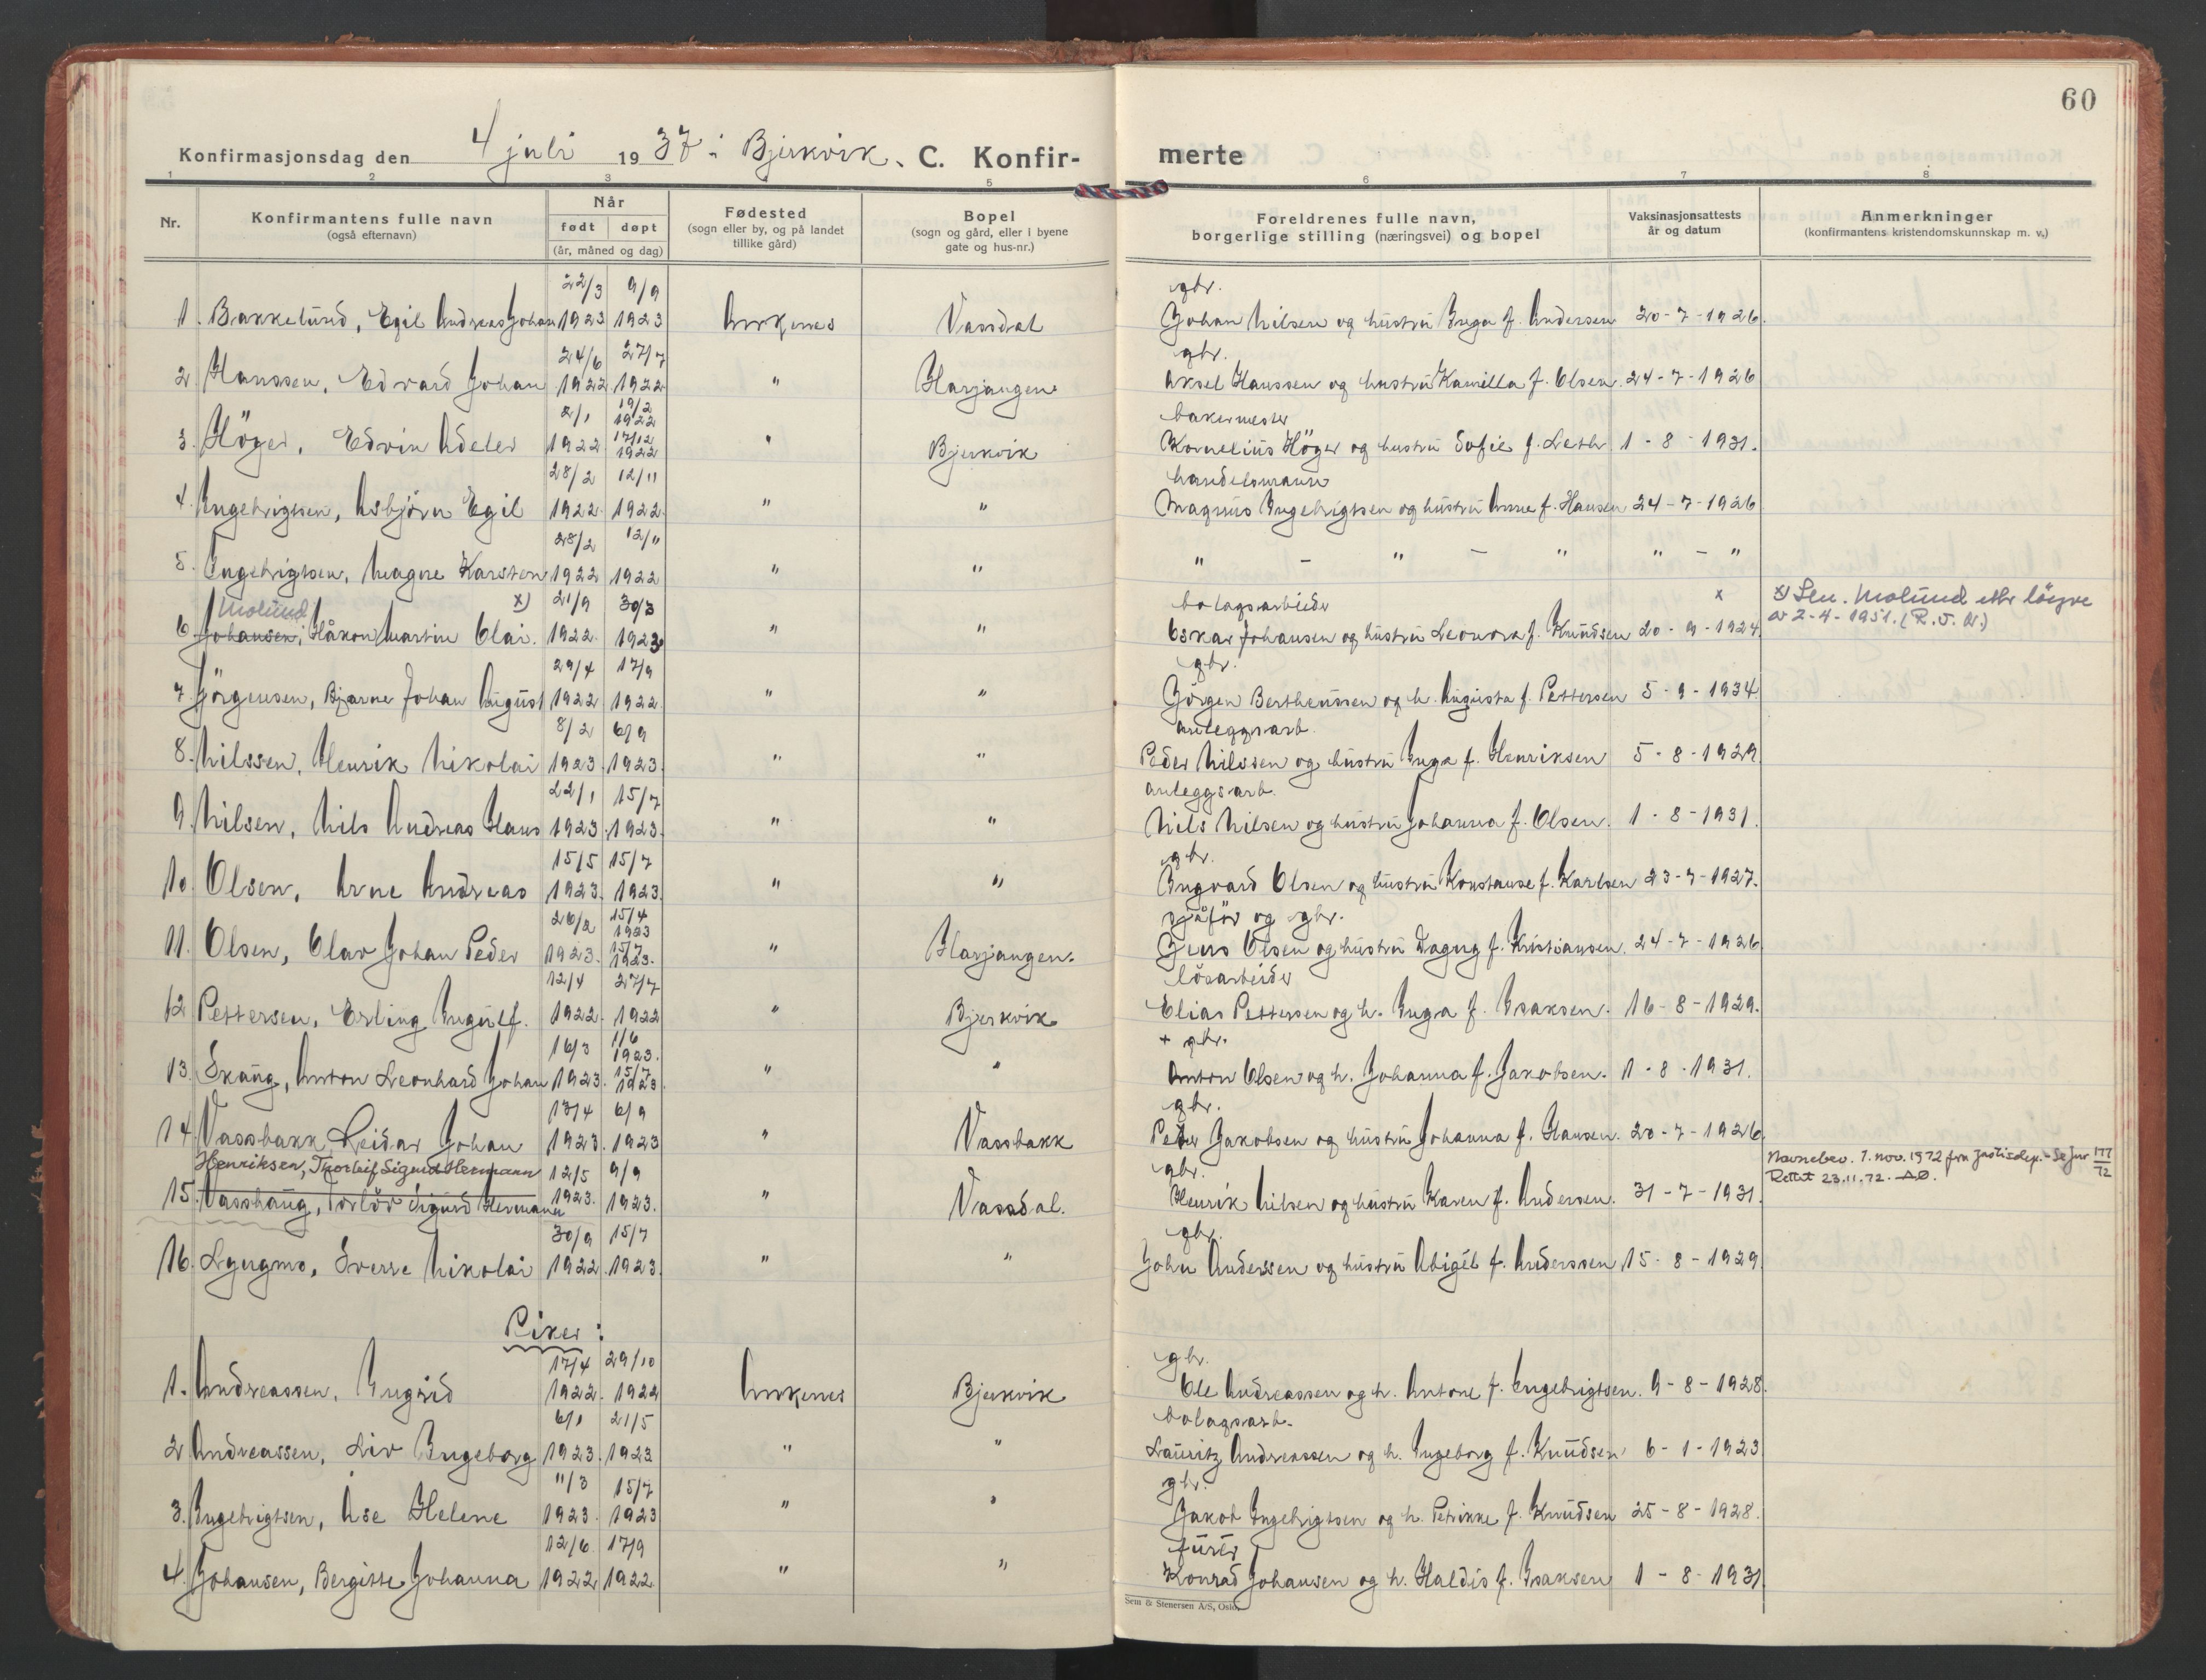 60
Konfirmasjonsdag den 4 juli 1937 i Bjerkvik. C. Konfir-
merte
1 2 3 4 5 6 7 8
Nr.
Konfirmantens fulle navn
(også efternavn)
Når
født døpt
(år, måned og dag)
Fødested
(sogn eller by, og på landet
tillike gård)
Bopel
(sogn og gård, eller i byene
gate og hus-nr.)
Foreldrenes fulle navn,
borgerlige stilling (næringsvei) og bopel
Vaksinasjonsattests
år og datum
Anmerkninger
(konfirmantens kristendomskunnskap m. v.)
22/3 9/9 gbr.
1. Bakkelund, Egil Andreas Johan 1923 1923 Ankenes Vassdal Johan Nilsen og hustru Inga f. Andersen 20-7-1926.
24/6 27/7 gbr.
2 Hanssen, Edvard Johan 1922 1922 " Harjangen Aksel Hanssen og hustru Kamilla f. Olsen. 24-7-1926
2/1 19/2 1922 bakermester
3. Höger, Edvin Adeler 1922 17/12 1922 " Bjerkvik Kornelius Höger og hustru Sofie f. Leth 1-8-1931.
28/2 12/11 handelsmann
4. Ingebrigtsen, Asbjörn Egil 1922 1922 " " Magnus Ingebrigtsen og hustru Anne f. Hansen 24-7-1926
28/2 12/11
5. Ingebrigtsen, Magne Karsten 1922 1922 " " " - " - " " - "
Molund x) 21/9 30/3 bolagsarbeider x x) Sen. Molund ettr löyve
6. Johansen, Håkon Martin Olai. 1922 1923 " " Oskar Johansen og hustru Leonora f. Knudsen 20-9-1924 av 2-4-1951. (R. J. A.)
29/4 17/9 gbr.
7. Jörgensen, Bjarne Johan August 1922 1922 " " Jörgen Bertheussen og h. Augusta f. Pettersen 5-9-1934
8/2 6/9 anleggsarb.
8. Nilssen, Henrik Nikolai 1923. 1923. " " Peder Nilssen og hustru Inga f. Henriksen 5-8-1929
22/1 15/7 anleggsarb.
9. Nilsen, Nils Andreas Hans 1923. 1923. " " Nils Nilsen og hustru Johanna f. Olsen. 1-8-1931.
15/5 15/7 gbr.
10 Olsen, Arne Andreas 1923. 1923. " " Ingvard Olsen og hustru Konstanse f. Karlsen 23-7-1927.
26/2 15/4 1923 sjåför og gbr.
11. Olsen, Olav Johan Peder 1923. 15/7 1923. " Harjangen. Jens Olsen og hustru Dagny f. Kristiansen. 24-7-1926
12/4 27/7 lösarbeider
12 Pettersen, Erling Ingulf. 1922. 1922 " Bjerkvik Elias Pettersen og h. Inga f. Isaksen. 16-8-1929.
16/3 1/6 1923. + gbr.
13. Skaug, Anton Leonhard Johan 1923. 15/7 1923. " " Anton Olsen og h. Johanna f. Jakobsen. 1-8-1931.
13/4 6/9 gbr.
14. Vassbakk, Reidar Johan 1923. 1923 " Vassbakk Peder Jakobsen og hustru Johanna f. Hansen. 20-7-1926
Henriksen, Thorleif Sigurd Hermann 12/5 9/9 gbr. Navnebev. 1. nov. 1972 fra Justisdep. - Se jnr 177/72
15. Vasshaug, Torlöv Sigurd Hermann 1923. 1923. " Vassdal. Henrik Nilsen og hustru Karen f. Andersen. 31-7-1931. Rettet 23.11.72. AØ.
30/9 15/7 gbr.
16. Lyngmo, Sverre Nikolai 1922. 1923. " " John Anderssen og hustru Abigél f. Anderssen 15-8-1929.
Piker:
17/4 29/10 gbr.
1. Andreassen, Ingrid 1922. 1922 Ankenes Bjerkvik Ole Andreassen og h. Antone f. Ingebrigtsen. 9-8-1928.
6/1 21/5 bolagsarb.
2 Andreassen, Liv Ingeborg 1923. 1923 " " Lauritz Andreassen og h. Ingeborg f. Knudsen 6-1-1923
11/3 15/7 gbr.
3. Ingebrigtsen, Åse Helene 1923. 1923 " " Jakob Ingebrigtsen og h. Petrikke f. Knudsen 25-8-1928.
12/6 17/9 furér
4. Johansen, Bergitte Johanna 1922 1922. " " Konrad Johansen og h. Haldis f. Isaksen 1-8-1931
Sem & Stenersen A/S, Oslo.